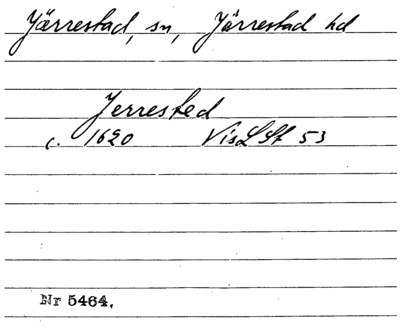 Järrestad, sn, Järrestad hd
Jerrested
c. 1620 VisLSt 53
Nr 5464.